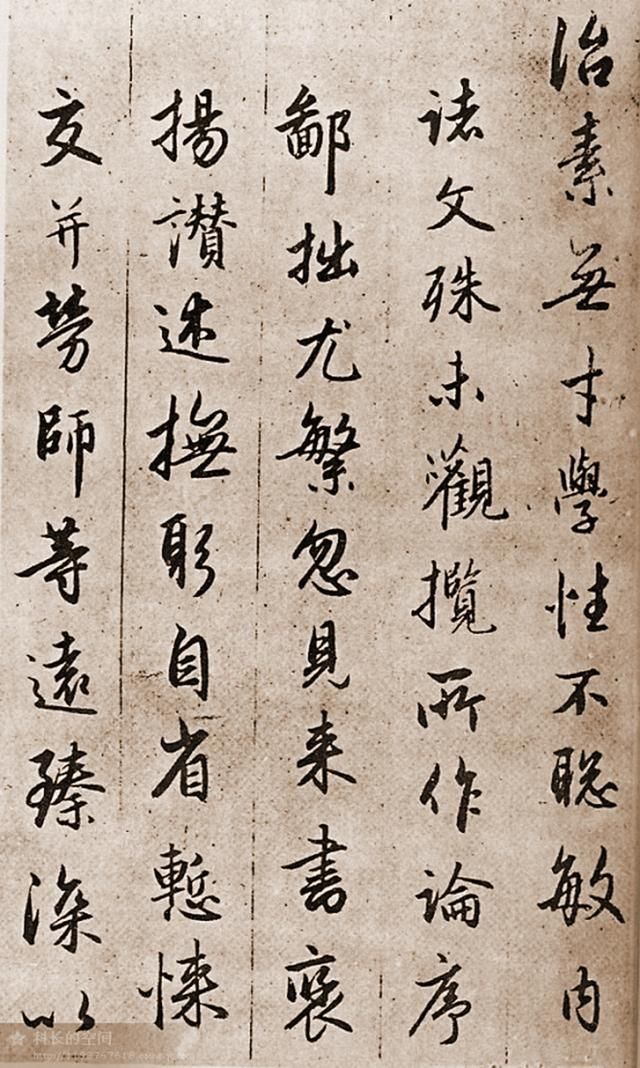 治素無才學性不聡敏内
諸文殊未觀攬所作論序
鄙拙尤繁忽見来書褒
揚讃述撫躬自省慙悚
交并勞師等遠臻深以
科长的空间